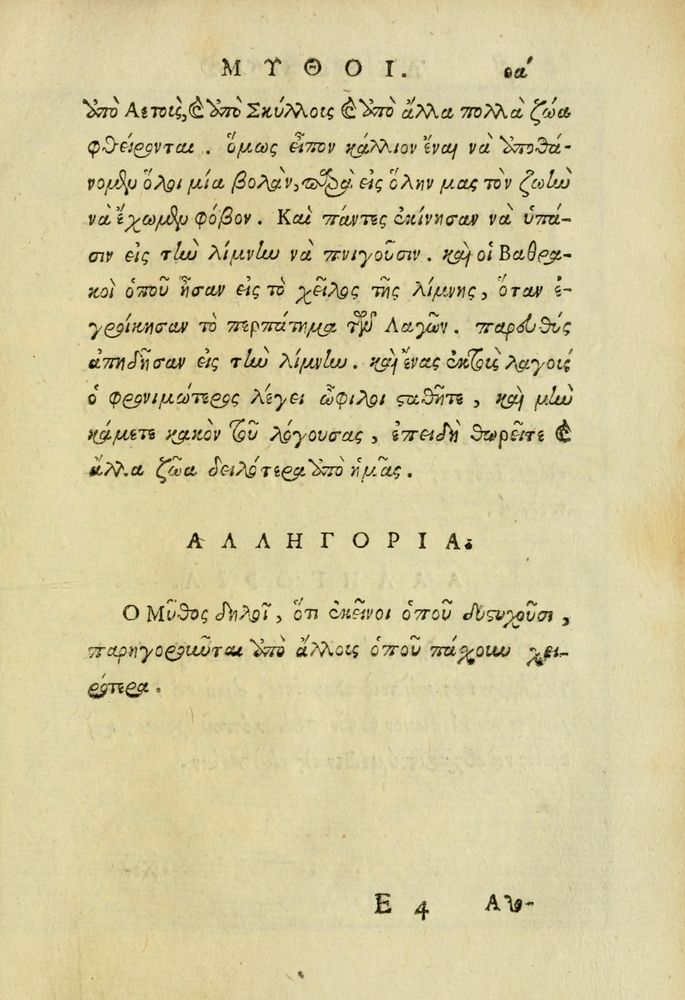 ΜΥΘΟΙ. οα'
ἀπὸ Ἀετοὶς, καὶ ἀπὸ Σκύλλοις καὶ ἀπὸ ἄλλα πολλὰ ζῶα
φθείρονται. ὅμως εἶπον κάλλιον ἔναι νὰ ἀποθά-
νομεν ὅλοι μία βολὰν, παρὰ εἰς ὅλην μας τὸν ζωὴν
νὰ ἔχωμεν φόβον. Καὶ πάντες ἐκίνησαν νὰ ὑπά-
σιν εἰς τὴν λίμνην νὰ πνιγοῦσιν. καὶ οἱ Βαθρα-
κοὶ ὁποῦ ἦσαν εἰς τὸ χεῖλος τῆς λίμνης, ὅταν ἐ-
γροίκησαν τὸ περπάτημα τῶν Λαγῶν. παρευθὺς
ἀπηδῆσαν εἰς τὴν λίμνην. καὶ ἕνας ἐκ τοὶς λαγοὶς
ὁ φρονιμώτερος λέγει ὦ φίλοι σταθῆτε, καὶ μὴν
κάμετε κακὸν τοῦ λόγουσας, ἐπειδὴ θωρεῖτε καὶ
ἄλλα ζῶα δειλότερα ἀπὸ ἡμᾶς.
ΑΛΛΗΓΟΡΙΑ.
Ο Μῦθος δηλοῖ, ὅτι ἐκεῖνοι ὁποῦ δυστυχοῦσι,
παρηγοριῶνται ἀπὸ ἄλλοις ὁποῦ πάχουν χει-
ρότερα.
Ε 4 Αυ-